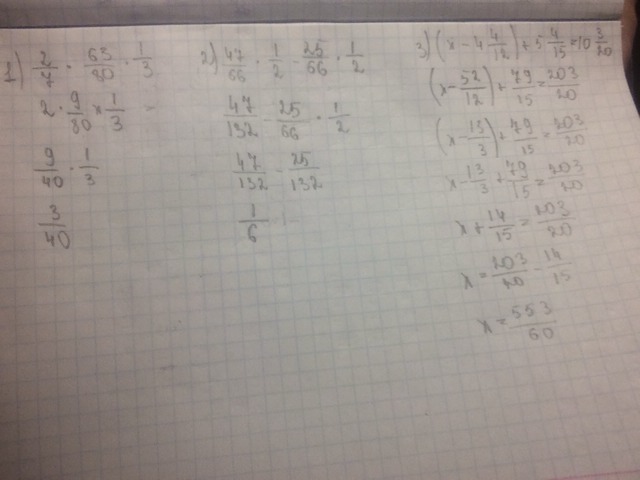 1) 2/7 · 63/80 · 1/3
2 · 9/80 × 1/3
9/40 · 1/3
3/40
2) 47/66 · 1/2 - 25/66 · 1/2
47/132 - 25/66 · 1/2
47/132 - 25/132
1/6
3) (x - 4 4/12) + 5 4/15 = 10 3/20
(x - 52/12) + 79/15 = 203/20
(x - 13/3) + 79/15 = 203/20
x - 13/3 + 79/15 = 203/20
x + 14/15 = 203/20
x = 203/20 - 14/15
x = 553/60